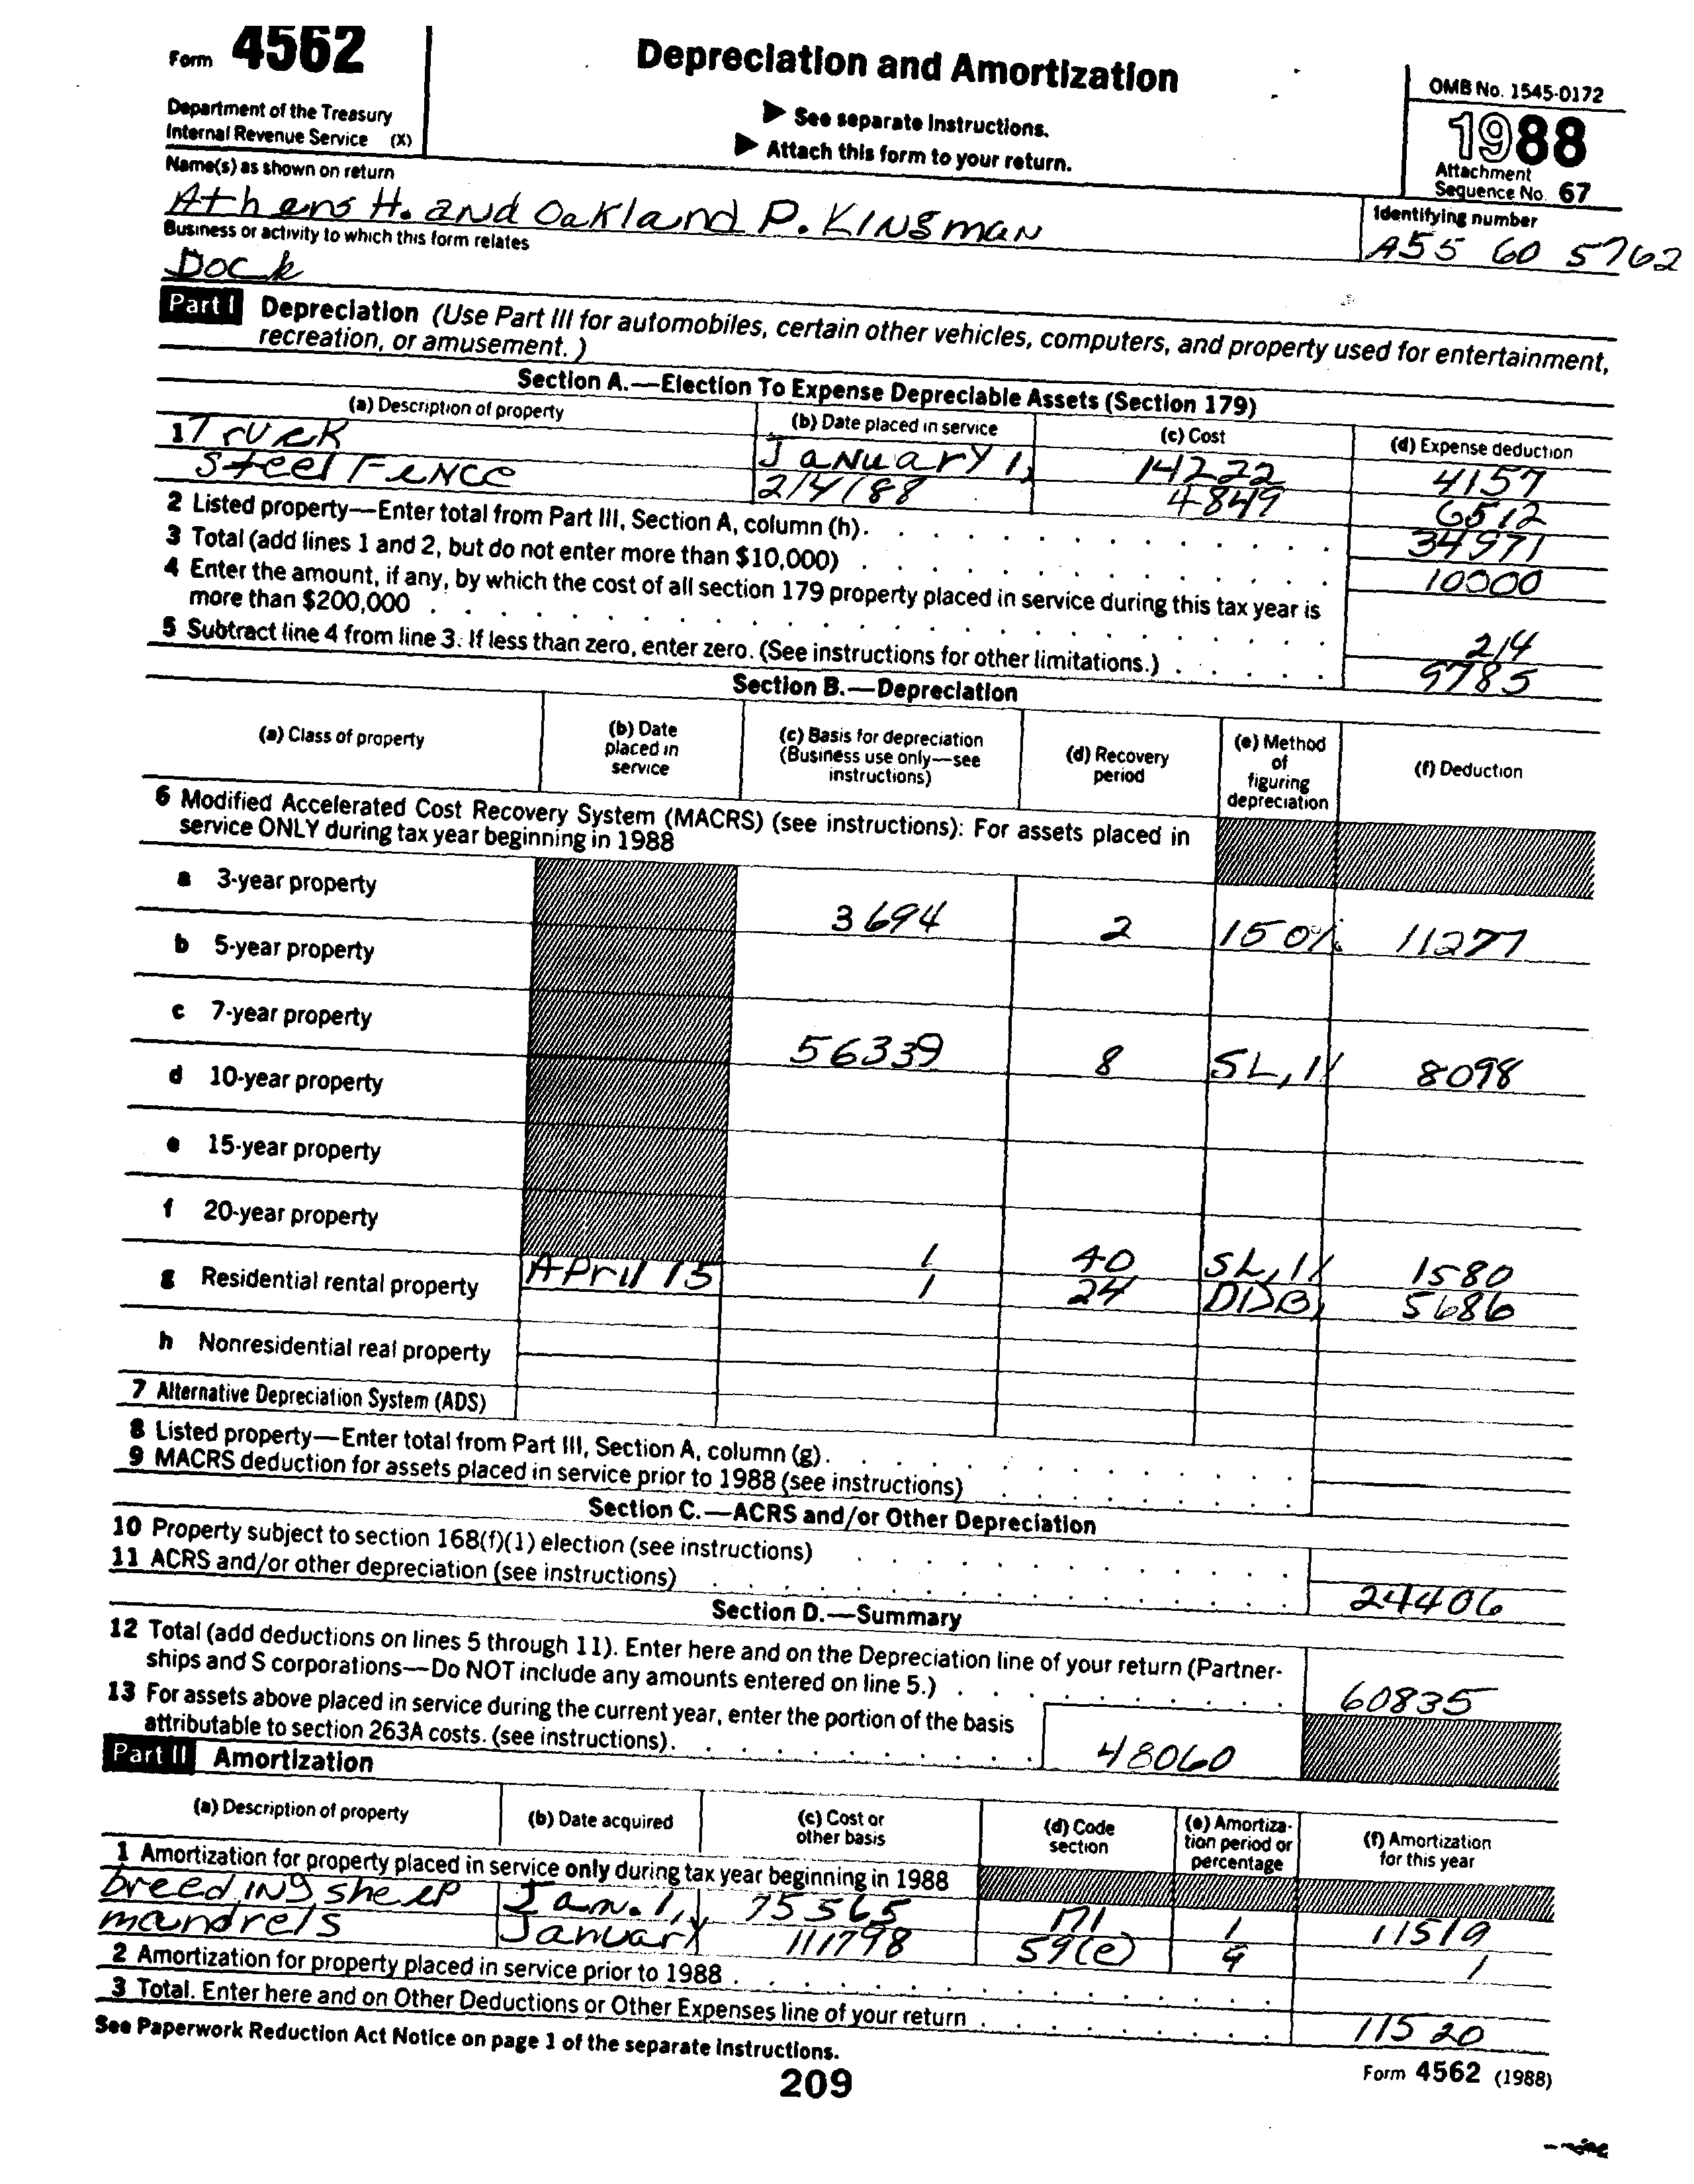 Form 4562
Department of the Treasury
Internal Revenue Service (X)
Depreciation and Amortization
▶ See separate Instructions.
▶ Attach this form to your return.
OMB No. 1545-0172
1988
Attachment
Sequence No. 67
Name(s) as shown on return
Athens H. and Oakland P. Kingman
Identifying number
A55 60 5762
Business or activity to which this form relates
Dock
Part I Depreciation (Use Part III for automobiles, certain other vehicles, computers, and property used for entertainment,
recreation, or amusement.)
Section A.—Election To Expense Depreciable Assets (Section 179)
(a) Description of property (b) Date placed in service (c) Cost (d) Expense deduction
1 Truck January 1, 14222 4157
Steel Fence 2/4/88 4849 6512
2 Listed property—Enter total from Part III, Section A, column (h). 34971
3 Total (add lines 1 and 2, but do not enter more than $10,000) 10000
4 Enter the amount, if any, by which the cost of all section 179 property placed in service during this tax year is
more than $200,000 214
5 Subtract line 4 from line 3. If less than zero, enter zero. (See instructions for other limitations.) 9785
Section B.—Depreciation
(a) Class of property (b) Date placed in service (c) Basis for depreciation (Business use only—see instructions) (d) Recovery period (e) Method of figuring depreciation (f) Deduction
6 Modified Accelerated Cost Recovery System (MACRS) (see instructions): For assets placed in
service ONLY during tax year beginning in 1988
a 3-year property
3694 2 150% 11277
b 5-year property
c 7-year property
56339 8 SL, 1/ 8098
d 10-year property
e 15-year property
f 20-year property
1 40 SL, 1/ 1580
g Residential rental property April 15 1 24 DDB, 5686
h Nonresidential real property
7 Alternative Depreciation System (ADS)
8 Listed property—Enter total from Part III, Section A, column (g).
9 MACRS deduction for assets placed in service prior to 1988 (see instructions)
Section C.—ACRS and/or Other Depreciation
10 Property subject to section 168(f)(1) election (see instructions)
11 ACRS and/or other depreciation (see instructions) 24406
Section D.—Summary
12 Total (add deductions on lines 5 through 11). Enter here and on the Depreciation line of your return (Partner-
ships and S corporations—Do NOT include any amounts entered on line 5.) 60835
13 For assets above placed in service during the current year, enter the portion of the basis
attributable to section 263A costs. (see instructions). 48060
Part II Amortization
(a) Description of property (b) Date acquired (c) Cost or other basis (d) Code section (e) Amortiza-tion period or percentage (f) Amortization for this year
1 Amortization for property placed in service only during tax year beginning in 1988
breeding sheep Jan. 1, 75565 171 1 11519
mandrels January 111798 59(e) 9 1
2 Amortization for property placed in service prior to 1988
3 Total. Enter here and on Other Deductions or Other Expenses line of your return 11520
See Paperwork Reduction Act Notice on page 1 of the separate instructions.
Form 4562 (1988)
209